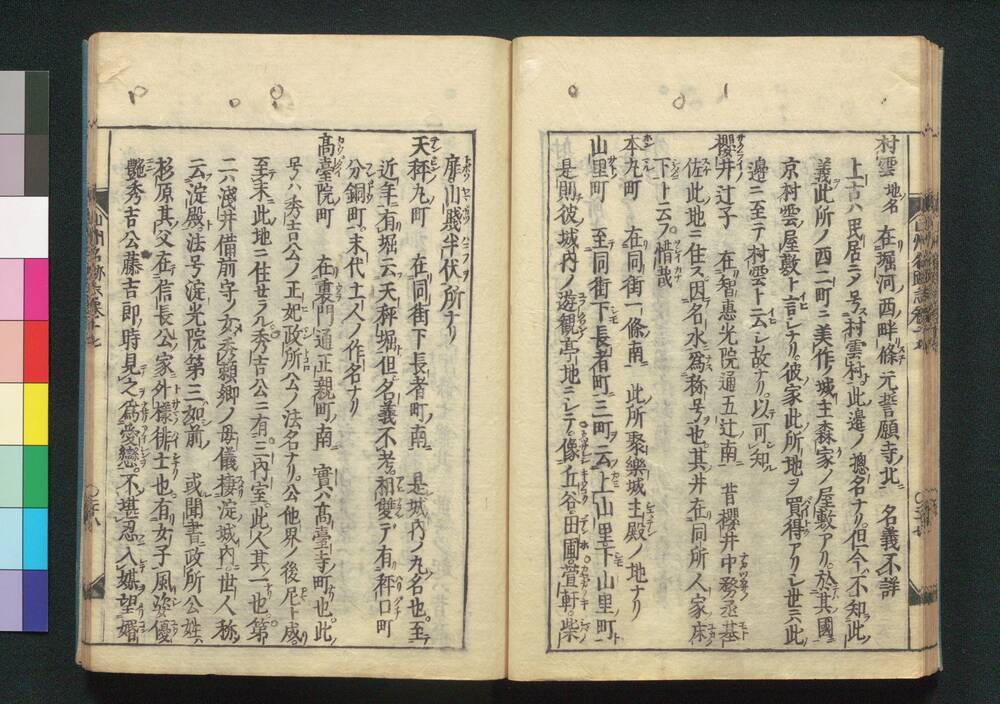 村雲 地名 在堀河西畔條元誓願寺北 名義不詳
上古ハ民居ニテ号村雲村此邊ノ摠名ナリ但今不知此
義此所ノ西二町ニ美作ノ城主森家ノ屋敷アリ於其國
京村雲屋敷ト言シナリ彼家此所地ヲ買得アリシ世ニ此
邊ニ至テ村雲ト云シ故ナリ以可知
櫻井辻子 在智惠光院通五辻南 昔櫻井中務丞基
佐此地ニ住ス因名水為称号也其井在同所人家床
下ト云フ惜哉
本丸町 在同街一條南 此所聚樂城主殿ノ地ナリ
山里町 至同街下長者町三町ヲ云上山里下山里町
是則彼城内ノ遊観亭地ニシテ像丘谷田圃萱軒柴
扉山賤半伏所ナリ
天秤丸町 在同街下長者町南 是城内ノ丸名也至
近年有堀云天秤堀但名義不考相雙デ有秤口町
分銅町末代土人ノ作名ナリ
髙臺院町 在裏門通正親町南 實ハ髙臺寺町也此
号ハ秀吉公ノ正妃政所公ノ法名ナリ公他界ノ後尼ト成
至末此地ニ住セラル秀吉公ニ有三内室此人其一也第
二ハ淺井備前守ノ女秀頼郷ノ母儀棲淀城内世人称
云淀殿法号淀光院第三如前 或聞書政所公姓
杉原其父在信長公家外様徘士也有女子風姿優
艶秀吉公藤吉郎ノ時見之為愛戀不堪忍入媒望婚